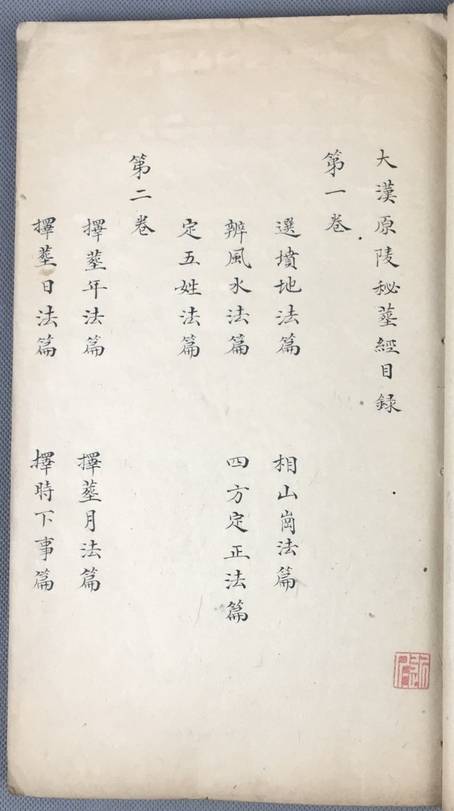 大漢原陵秘葬經目録
第一卷
選墳地法篇 相山崗法篇
辨風水法篇 四方定正法篇
定五姓法篇
第二卷
擇葬年法篇 擇葬月法篇
擇葬日法篇 擇時下事篇